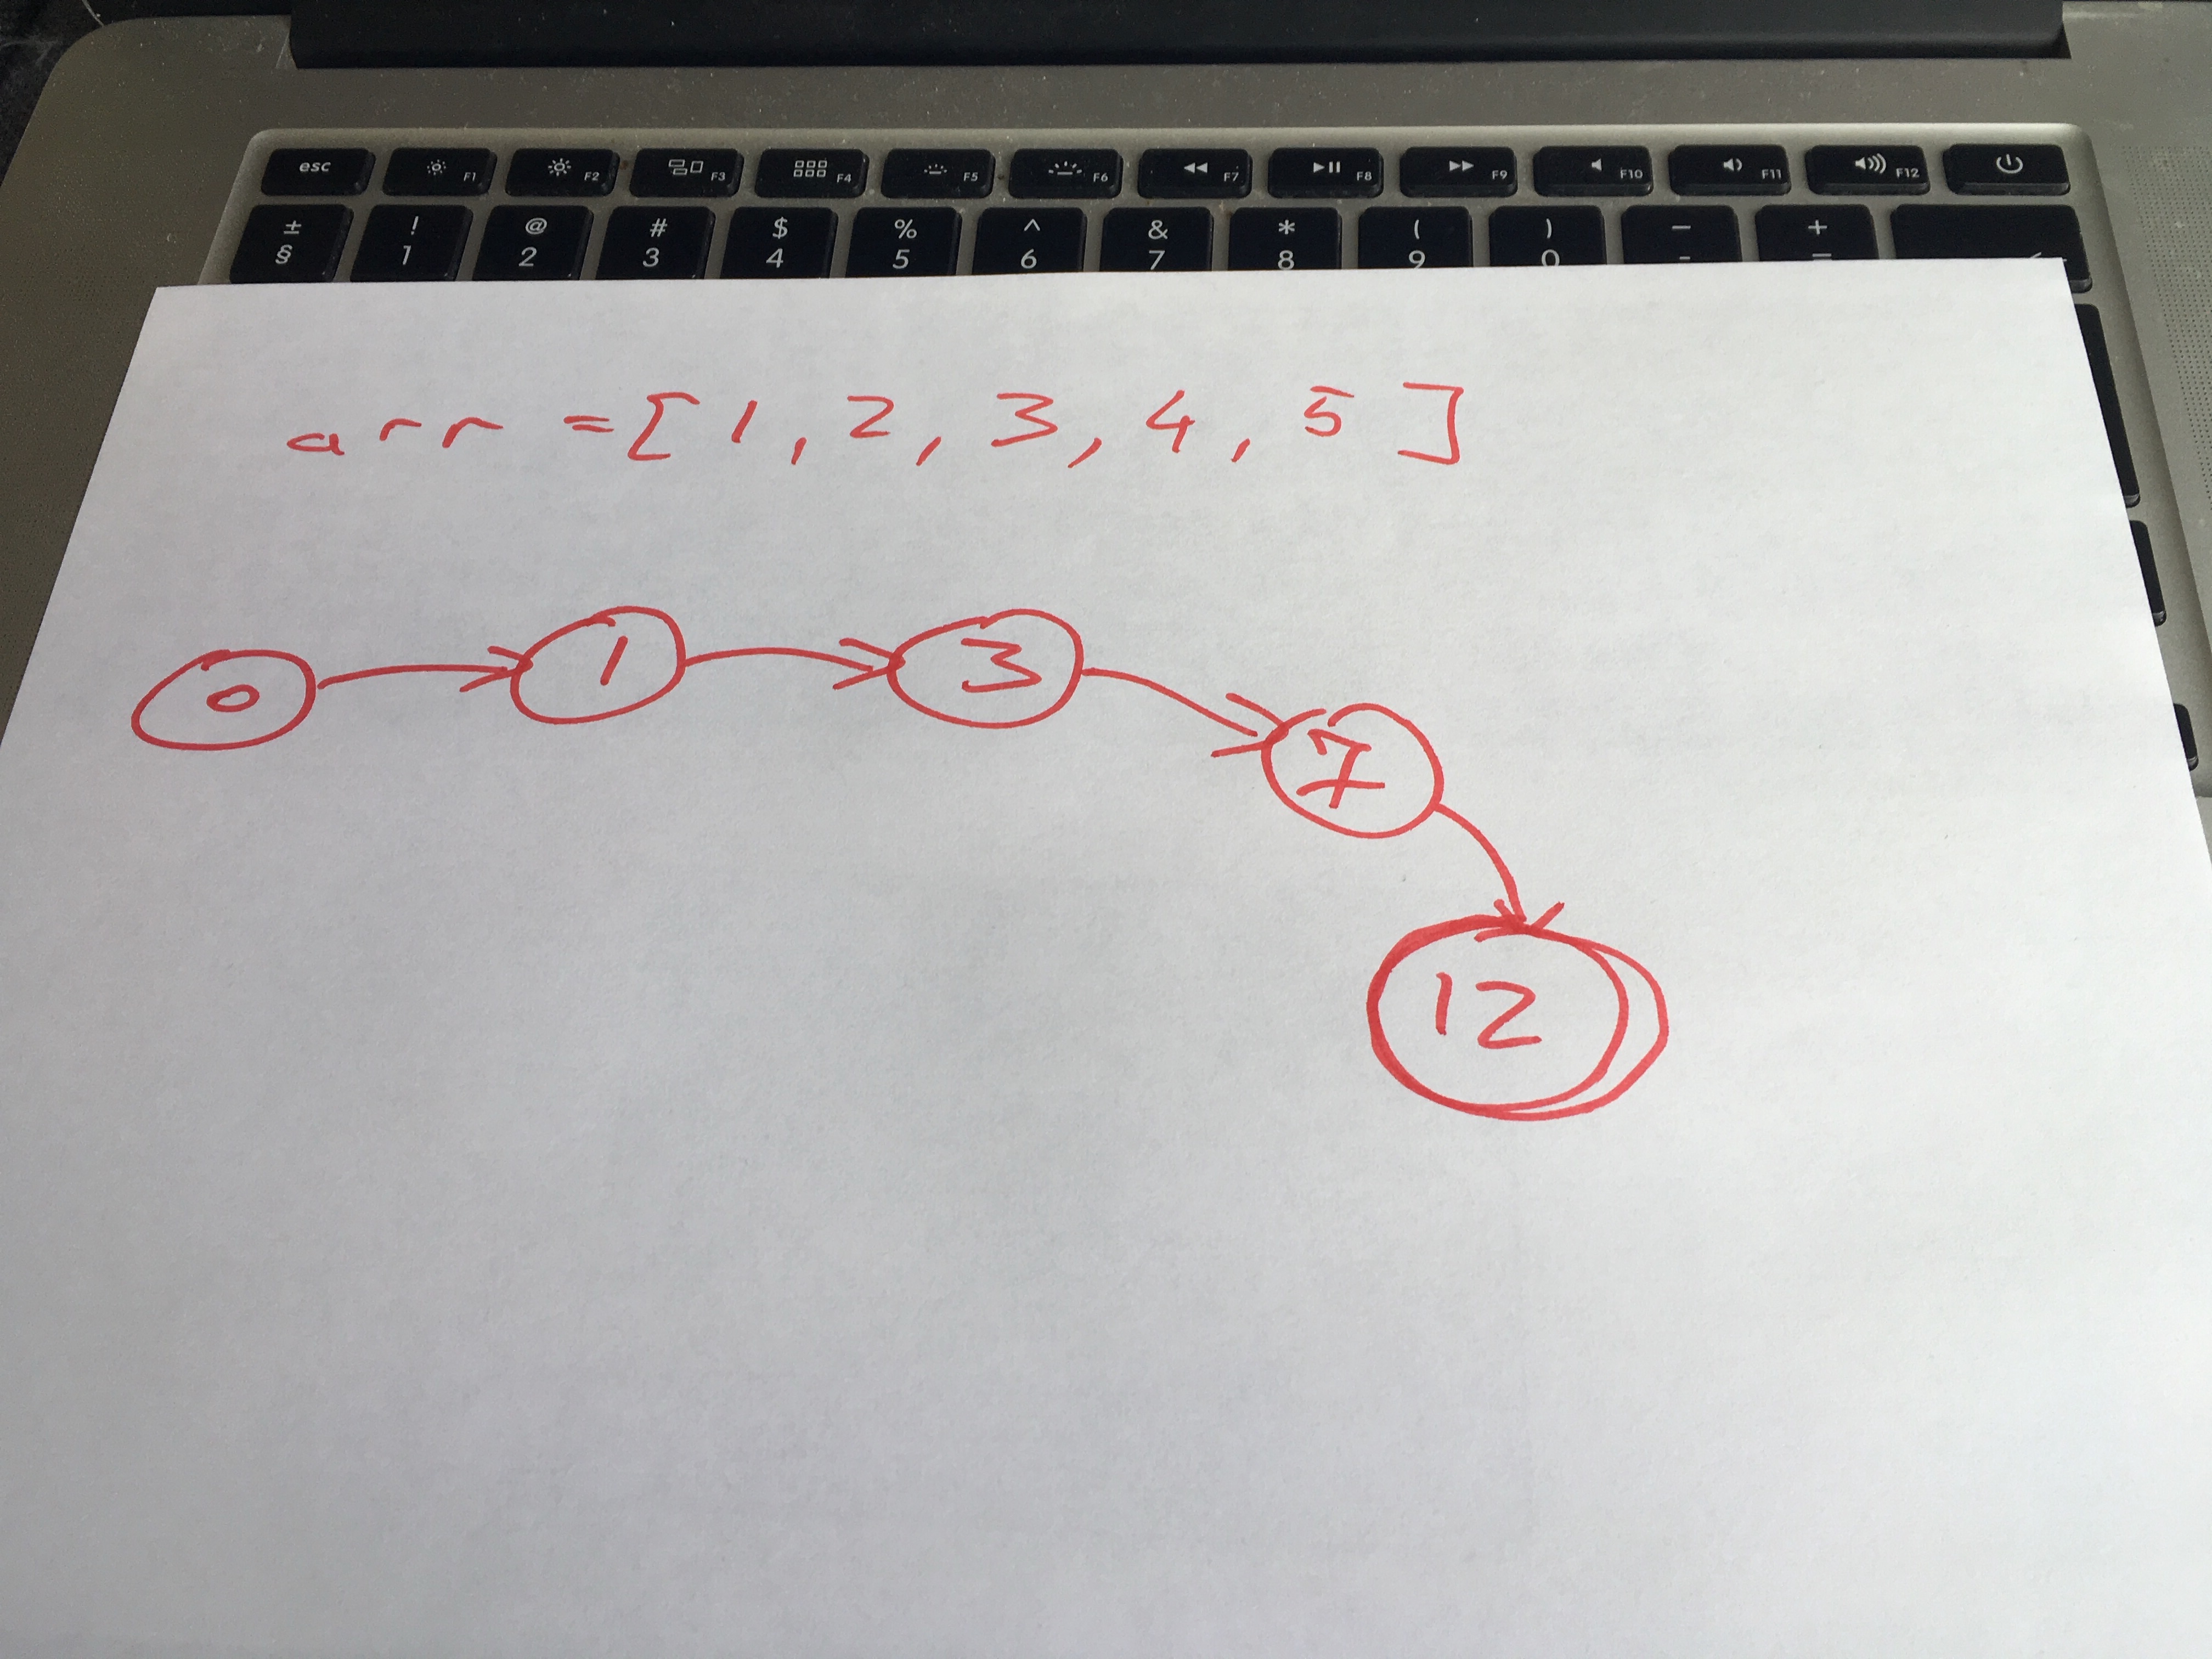 esc F1 F2 F3 F4 F5 F6 F7 F8 F9 F10 F11 F12
± ! @ # $ % ^ & * ( ) — +
§ 1 2 3 4 5 6 7 8 9 0 - =
arr = [ 1 , 2 , 3 , 4 , 5 ]
0 1 3
7
12